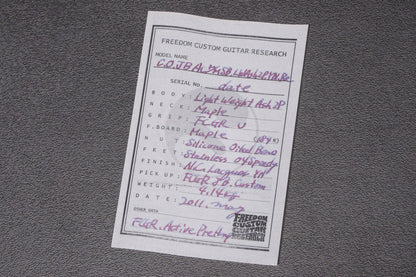 FREEDOM CUSTOM GUITAR RESEARCH
MODEL NAME
C.O.JB
SERIAL NO. date
BODY: Light Weight Ash 2P
NECK: Maple
GRIP: FCGR U
F.BOARD: Maple
NUT: Silicone Oiled Bone
FRET: Stainless 04 Speedy
FINISH: N.C. Lacquer
PICK UP: FCGR J.B. Custom
WEIGHT: 4.14kg
DATE: 2011. may
OTHER DATA
FCGR. Active PreAmp
FREEDOM
CUSTOM
GUITAR
RESEARCH